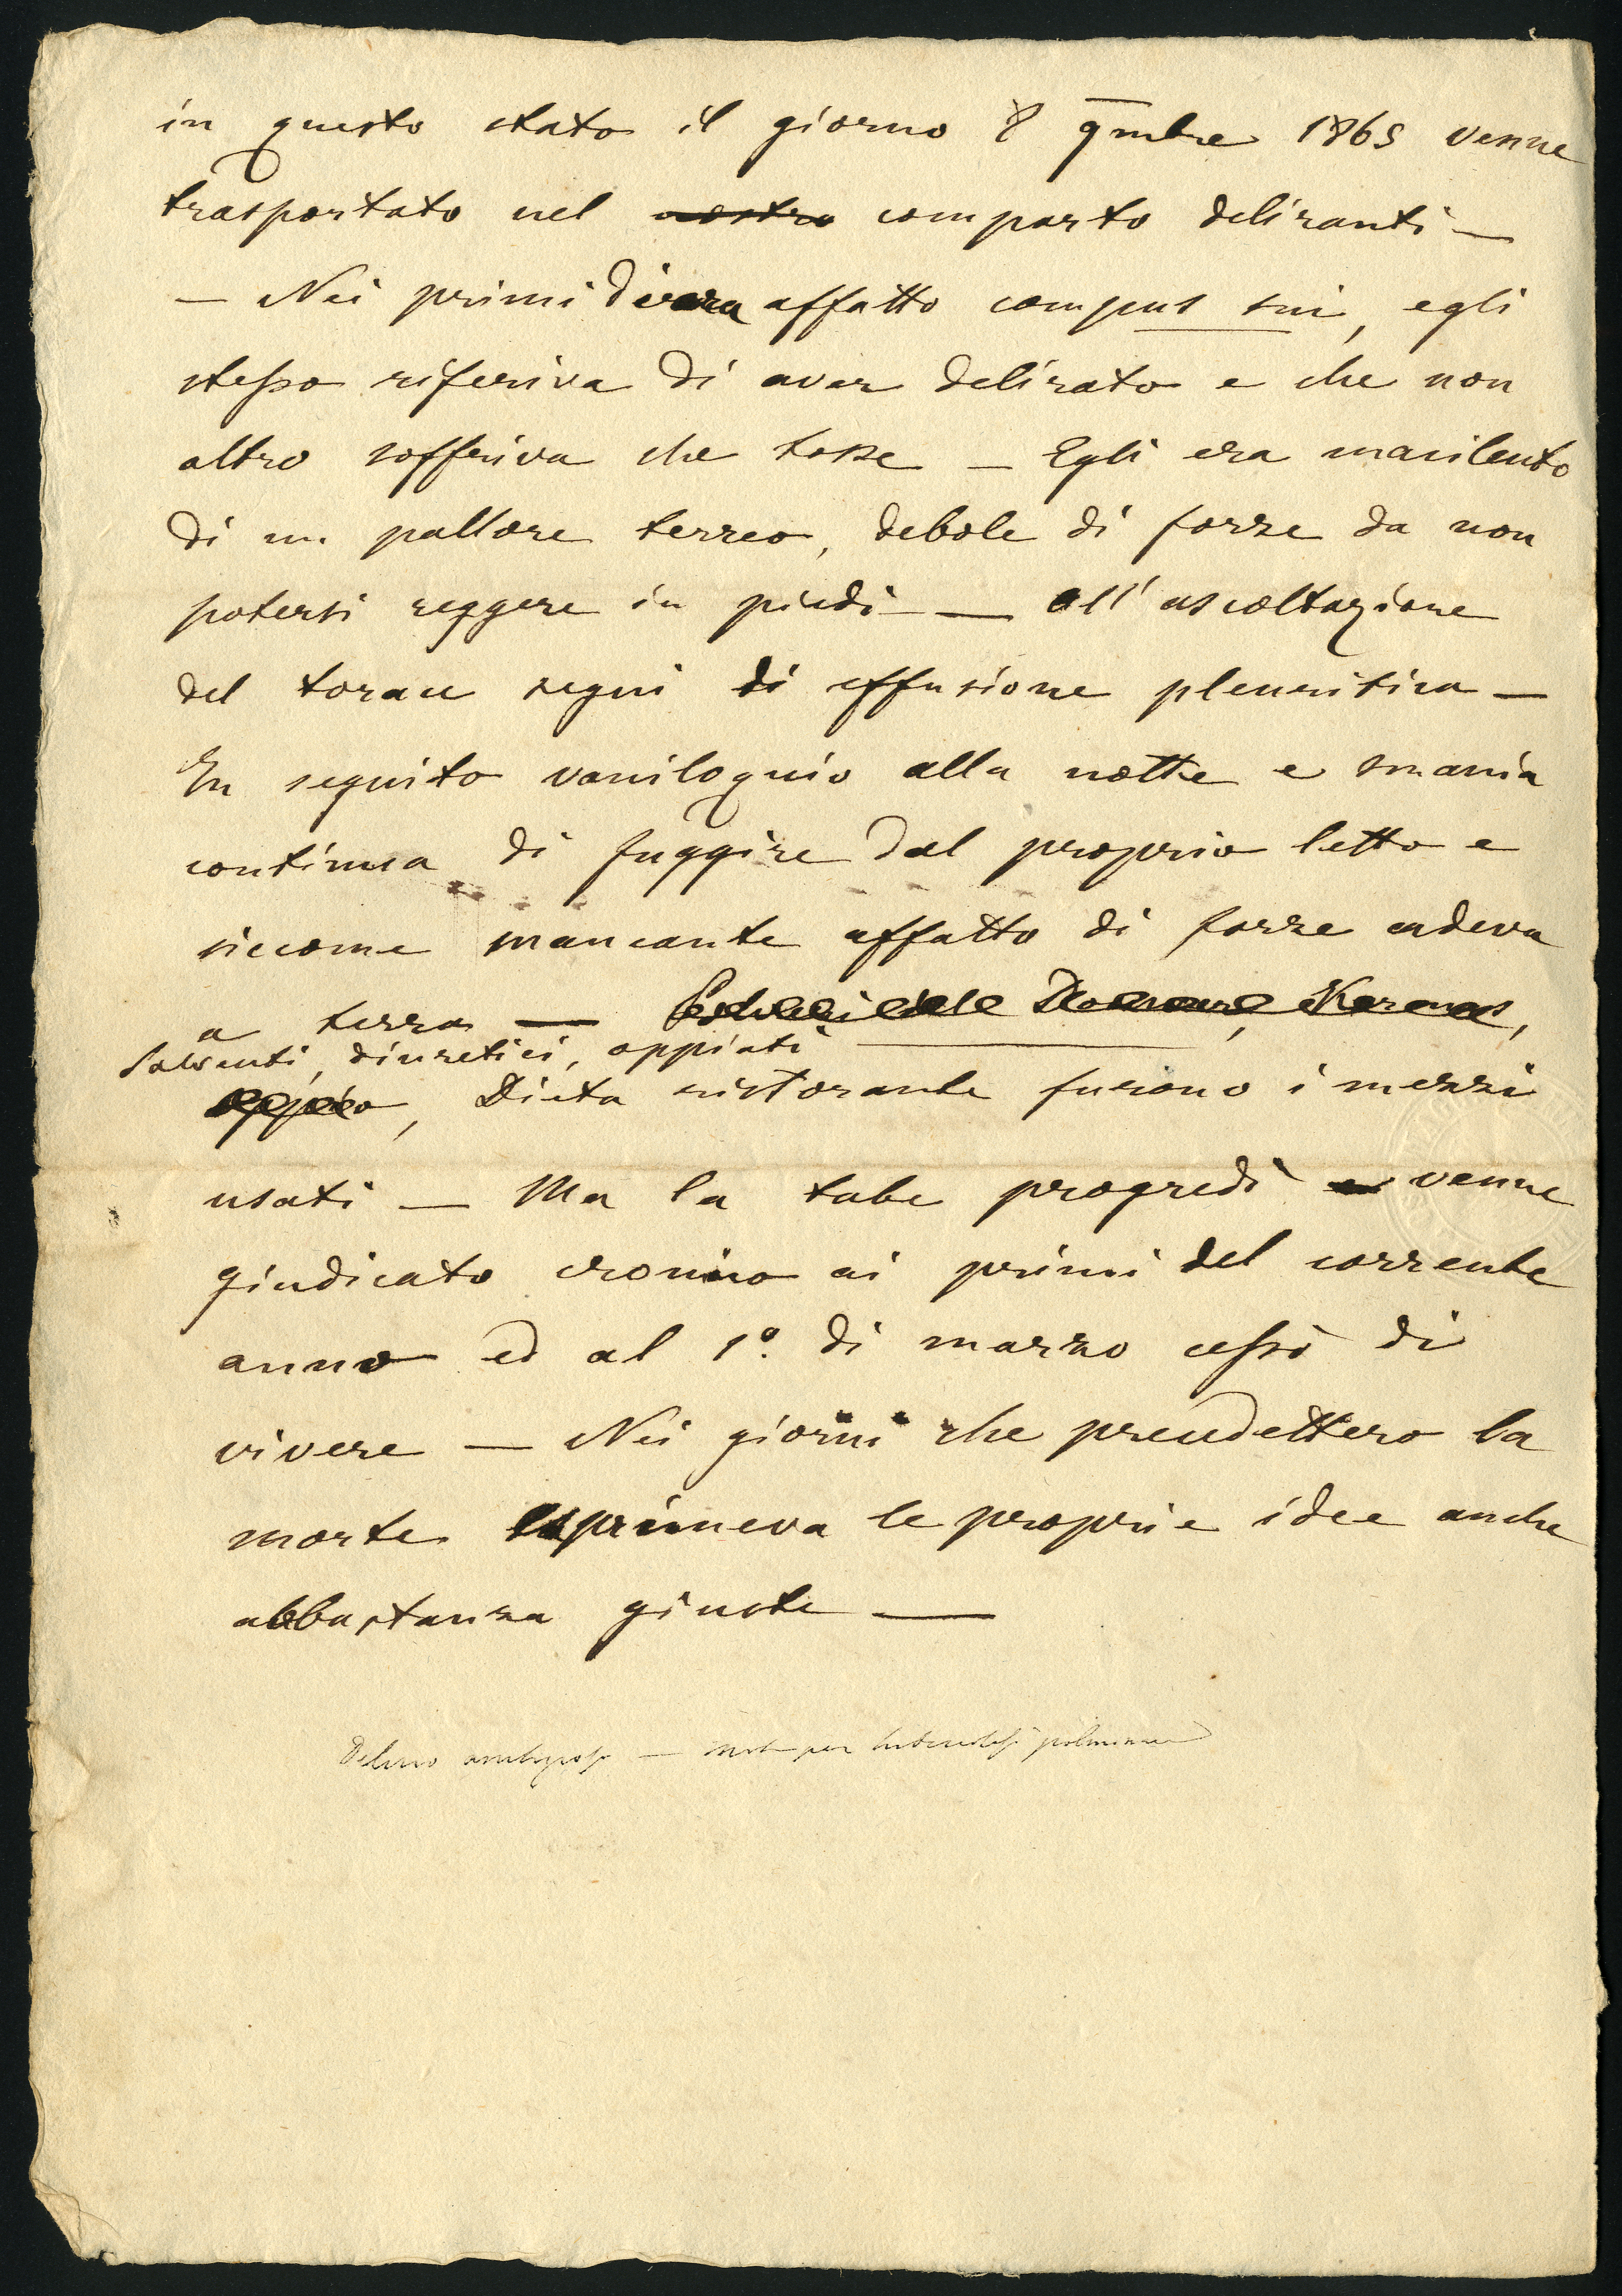 in questo stato il giorno 8 9mbre 1865 venne
trasportato nel nostro comparto deliranti —
— Nei primi dì era affatto compus sui, egli
stesso riferiva di aver delirato e che non
altro sofferiva che tosse — Egli era macilento
di un pallore terreo, debole di forze da non
potersi reggere in piedi — All'ascoltazione
del torace segni di effusione pleuritica —
In seguito vaniloquio alla notte e smania
continua di fuggire dal proprio letto e
siccome mancante affatto di forze cadeva
a terra —
Solventi, diuretici, oppiati
oppio, Dieta ristorante furono i mezzi
usati — Ma la tabe progredì e venne
giudicato cronico ai primi del corrente
anno ed al 1º di marzo cessò di
vivere — Nei giorni che precedettero la
morte esprimeva le proprie idee anche
abbastanza giuste —
Delirio — per tubercolosi polmonare